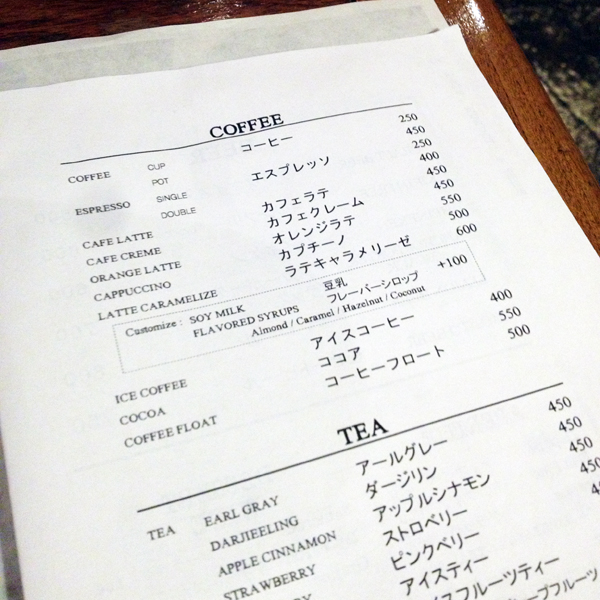 COFFEE
COFFEE CUP コーヒー 250
POT 450
ESPRESSO SINGLE エスプレッソ 250
DOUBLE 400
CAFE LATTE カフェラテ 450
CAFE CREME カフェクレーム 450
ORANGE LATTE オレンジラテ 550
CAPPUCCINO カプチーノ 500
LATTE CARAMELIZE ラテキャラメリーゼ 600
Customize : SOY MILK 豆乳 +100
FLAVORED SYRUPS フレーバーシロップ
Almond / Caramel / Hazelnut / Coconut
ICE COFFEE アイスコーヒー 400
COCOA ココア 550
COFFEE FLOAT コーヒーフロート 500
TEA
TEA EARL GRAY アールグレー 450
DARJIEELING ダージリン 450
APPLE CINNAMON アップルシナモン 450
STRAWBERRY ストロベリー 450
ピンクベリー
アイスティー
スフルーツティー